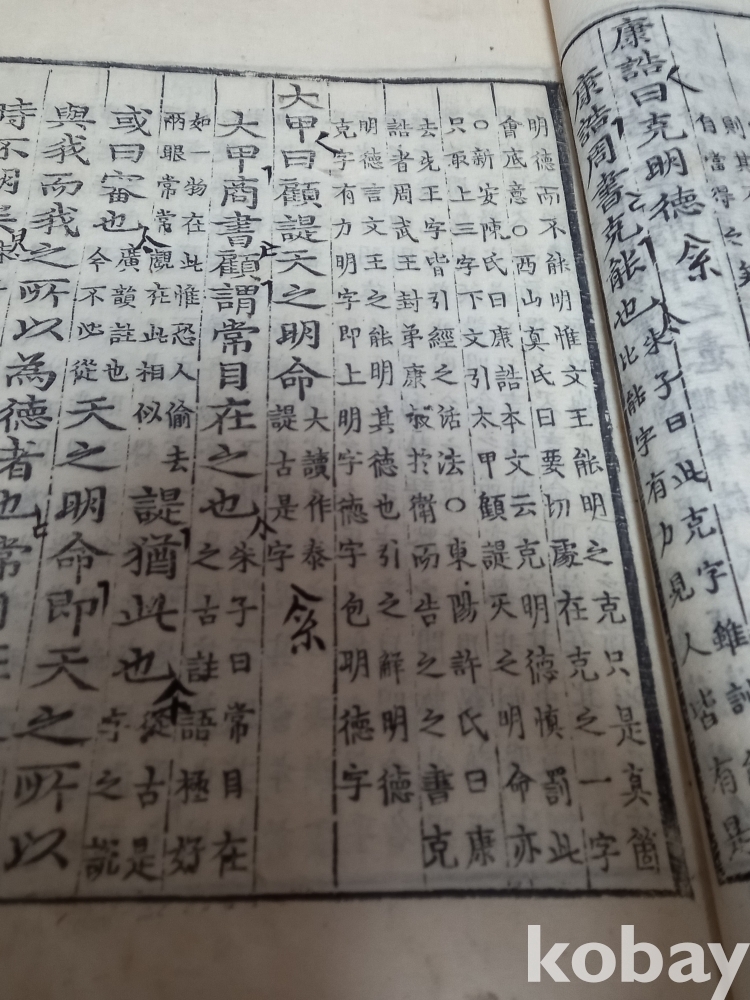 則其
自當得之矣
康誥曰克明德
康誥周書克能也
朱子曰此克字雖訓
比能字有力見人皆有是
明德而不能明惟文王能明之克只是真箇
會底意○西山真氏曰要切處在克之一字
○新安陳氏曰康誥本文云克明德慎罰此
只取上三字下文引太甲顧諟天之明命亦
去先王字皆引經之活法○東陽許氏曰康
誥者周武王封弟康叔於衛而告之之書克
明德言文王之能明其德也引之解明德
克字有力明字即上明字德字包明德字
大甲曰顧諟天之明命
大讀作泰
諟古是字
大甲商書顧謂常目在之也
朱子曰常目在
之古註語極好
如一物在此惟恐人偷去
兩眼常常覷在此相似
諟猶此也
從古是
字之說
或曰審也
廣韻註也
今不必從
天之明命即天之所以
與我而我之所以為德者也常目在
時不明矣
kobay